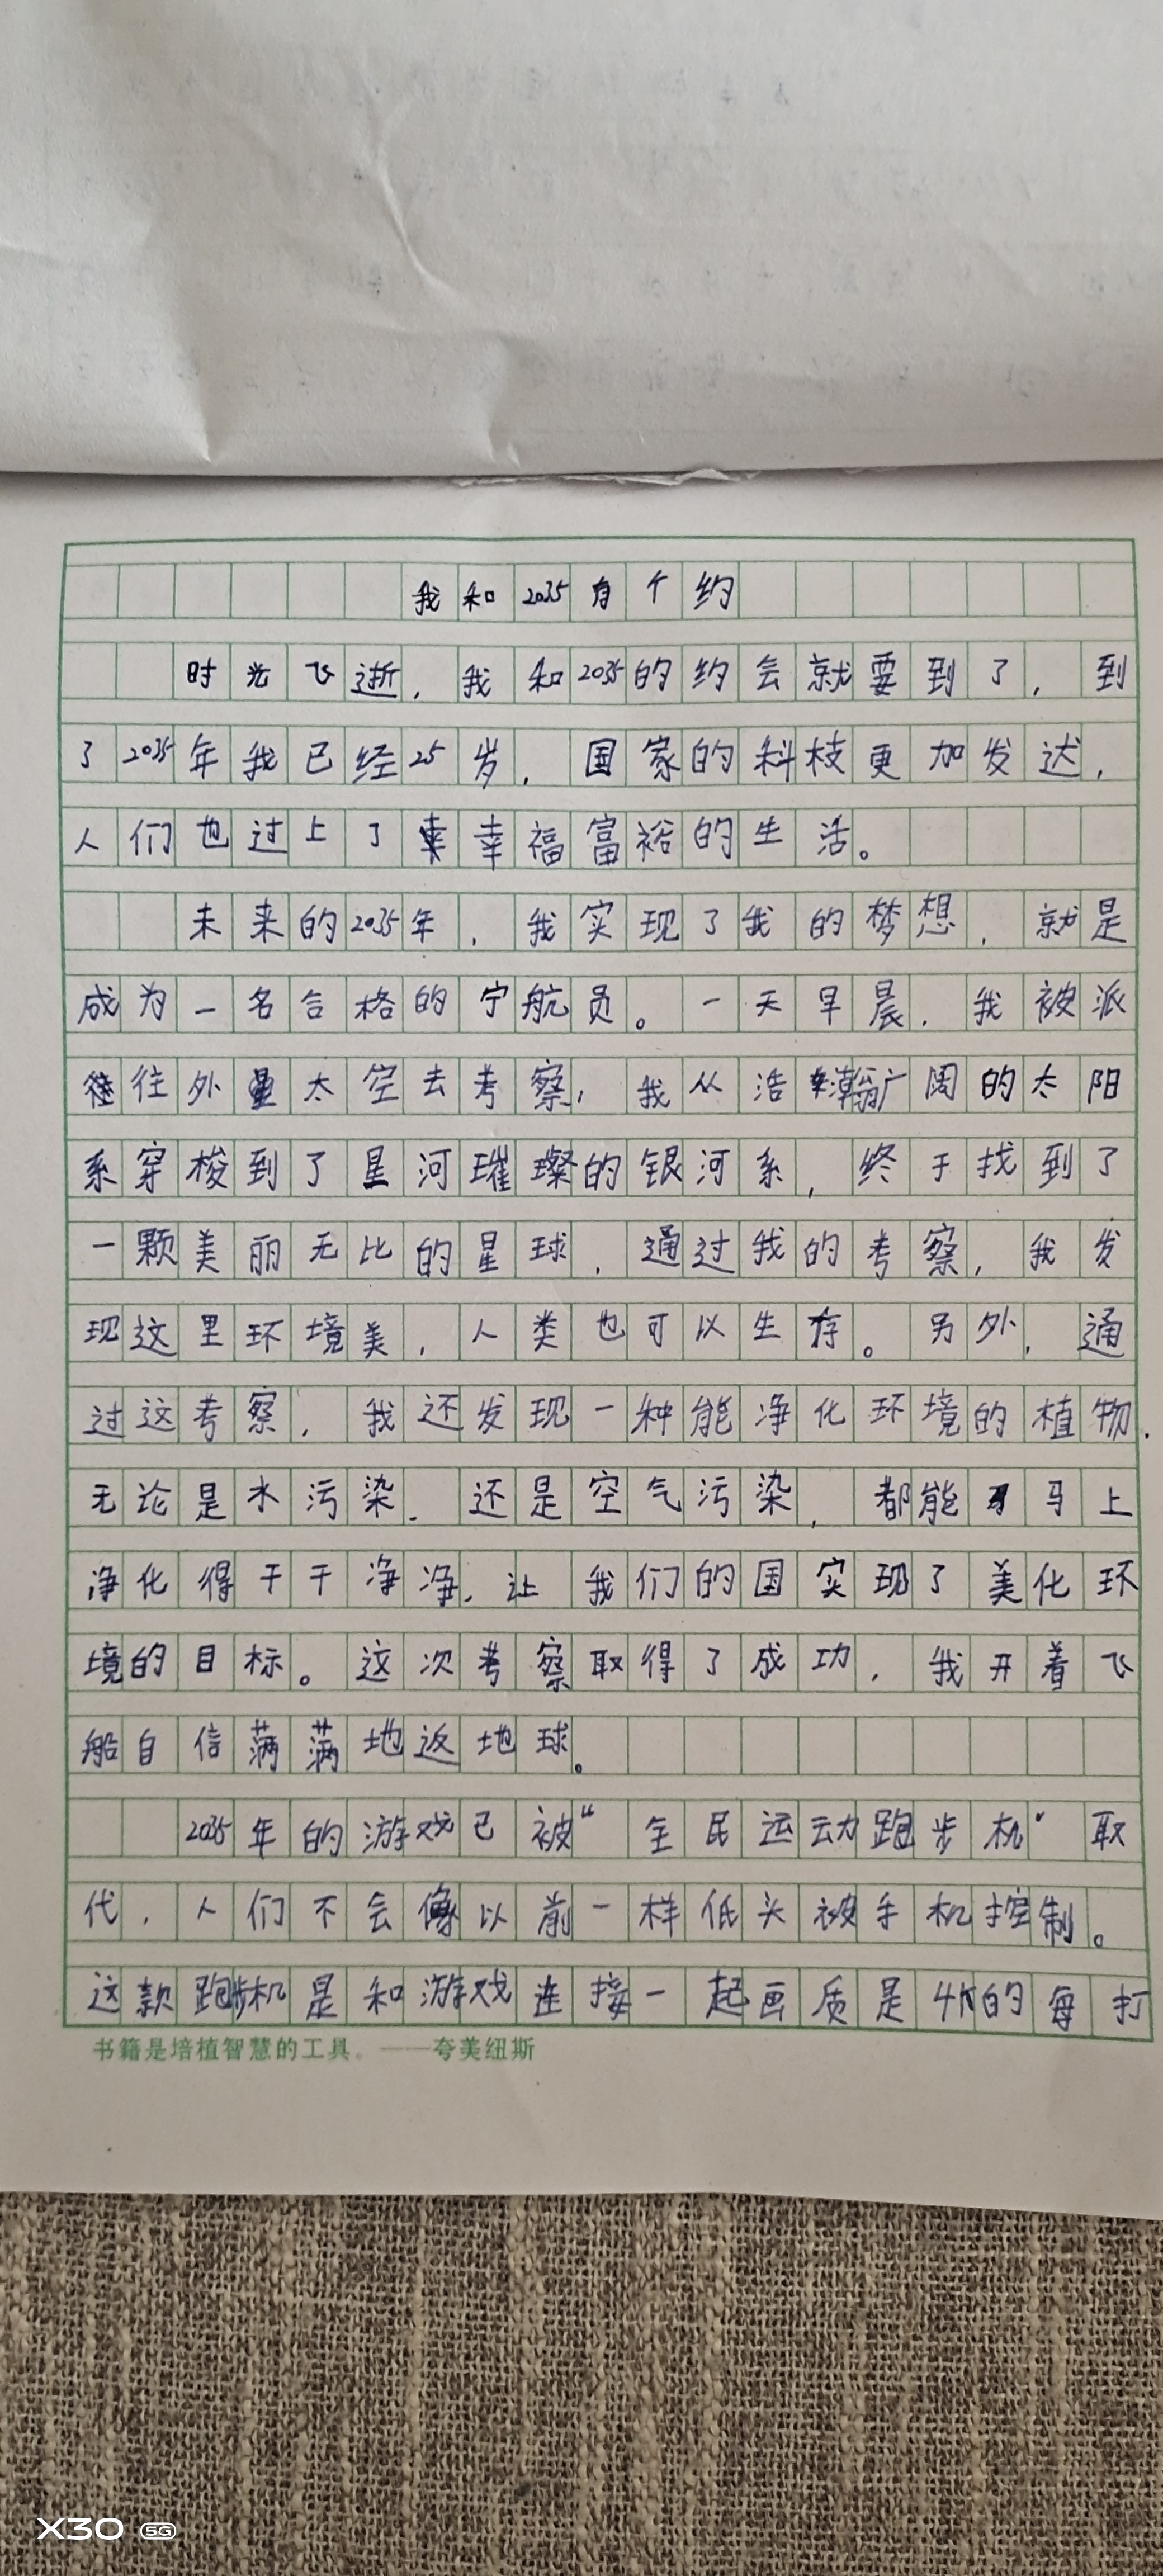 我和2035有个约
时光飞逝，我和2035的约会就要到了，到
了2035年我已经25岁，国家的科技更加发达，
人们也过上了幸福富裕的生活。
未来的2035年，我实现了我的梦想，就是
成为一名合格的宁航员。一天早晨，我被派
往外太空去考察，我从浩瀚广阔的太阳
系穿梭到了星河璀璨的银河系，终于找到了
一颗美丽无比的星球，通过我的考察，我发
现这里环境美，人类也可以生存。另外，通
过这考察，我还发现一种能净化环境的植物．
无论是水污染．还是空气污染，都能马上
净化得干干净净，让我们的国实现了美化环
境的目标。这次考察取得了成功，我开着飞
船自信满满地返地球。
2035年的游戏已被“全民运动跑步机”取
代，人们不会像以前一样低头被手机控制。
这款跑步机是和游戏连接一起画质是4K的每打
书籍是培植智慧的工具。——夸美纽斯
X30 5G